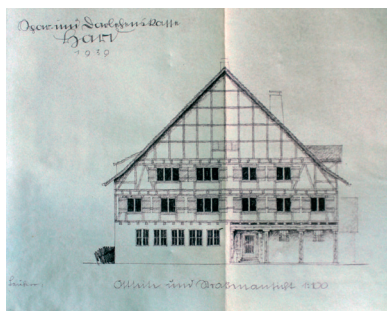 Spar und Darlehenskasse
Hart
1939
und Straßenansicht 1:100